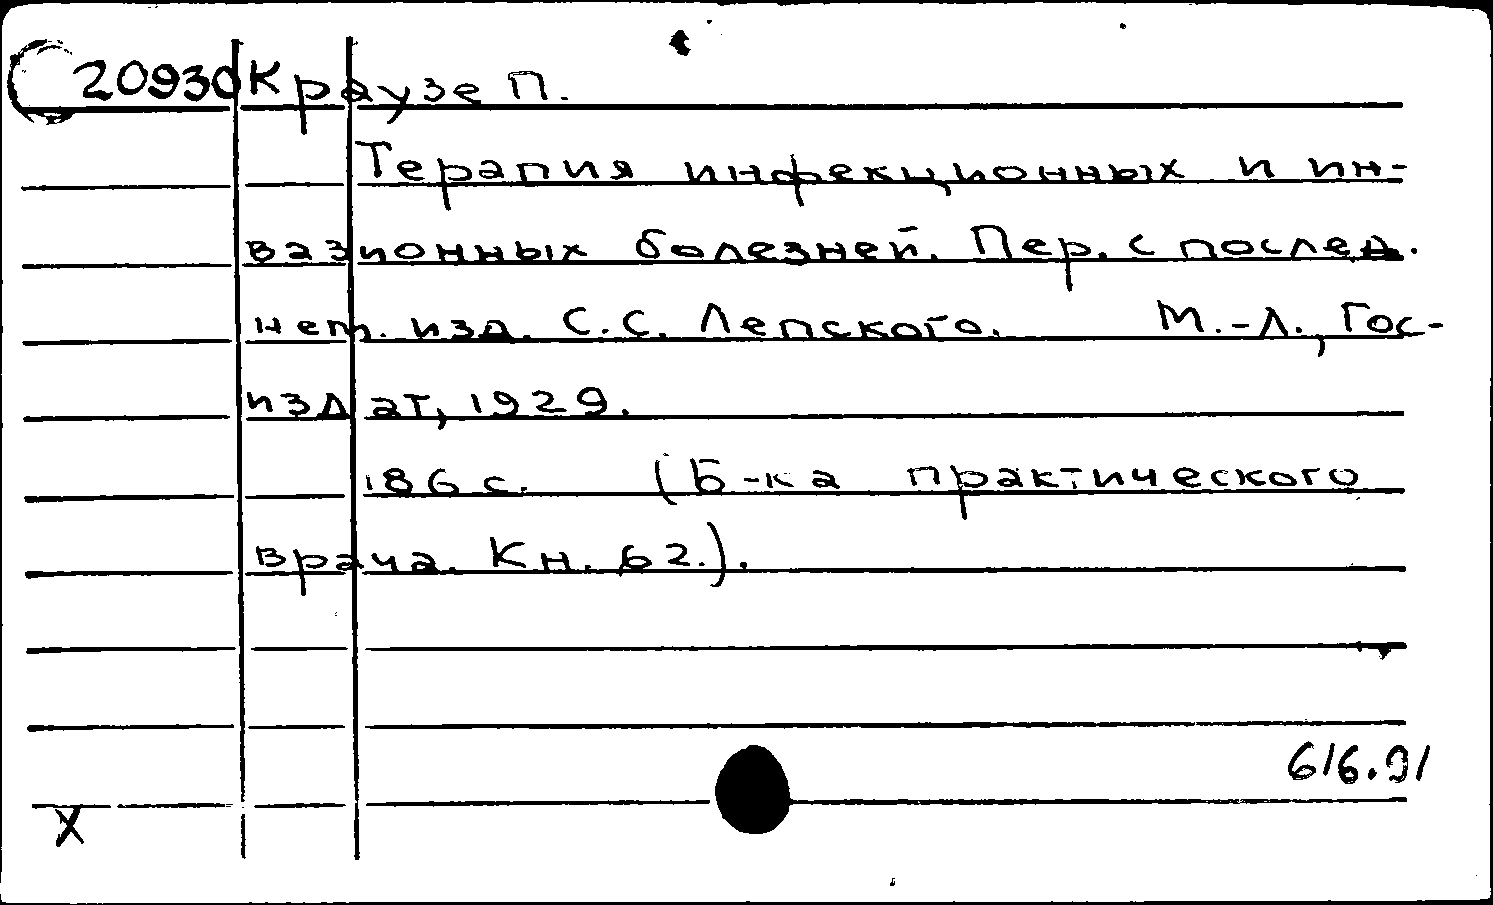 20930 Краузе П.
Терапия инфекционных и ин-
вазионных болезней. Пер. с послед.
нем. изд. С.С. Лепского. М.-Л., Гос-
издат, 1929.
186 с. (Б-ка практического
врача. Кн. 62.).
616.91
X